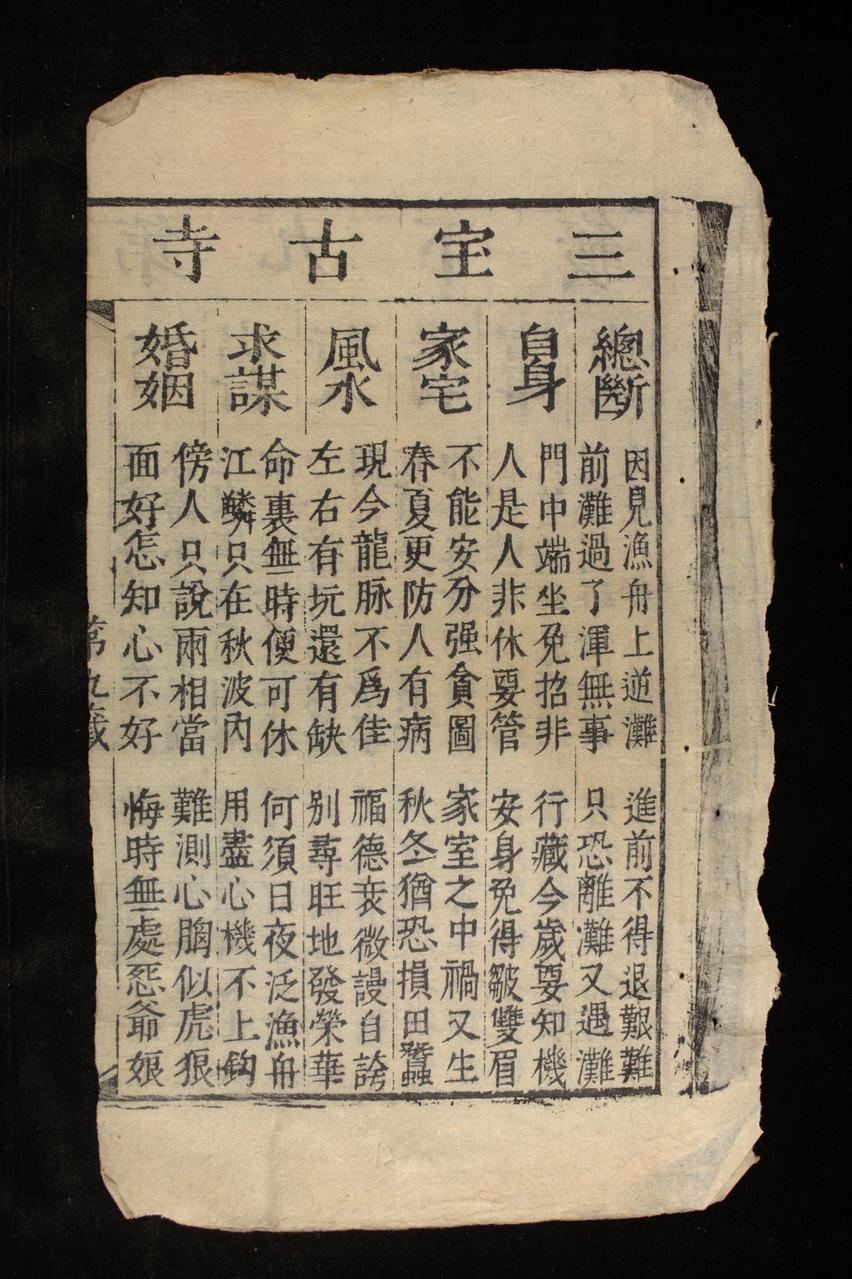 三宝古寺
總斷
因見漁舟上逆灘 進前不得退艱難
前灘過了渾無事 只恐離灘又遇灘
自身
門中端坐免招非 行藏今歲要知機
人是人非休要管 安身免得皺雙眉
家宅
不能安分强貪圖 家室之中禍又生
春夏更防人有病 秋冬猶恐損田蠶
風水
現今龍脉不爲佳 福德衰微謾自誇
左右有玩還有缺 别尋旺地發榮華
求謀
命裏無時便可休 何須日夜泛漁舟
江鱗只在秋波内 用盡心機不上鈎
婚姻
傍人只說兩相當 難測心胸似虎狼
面好怎知心不好 悔時無處怨爺娘
第九籤